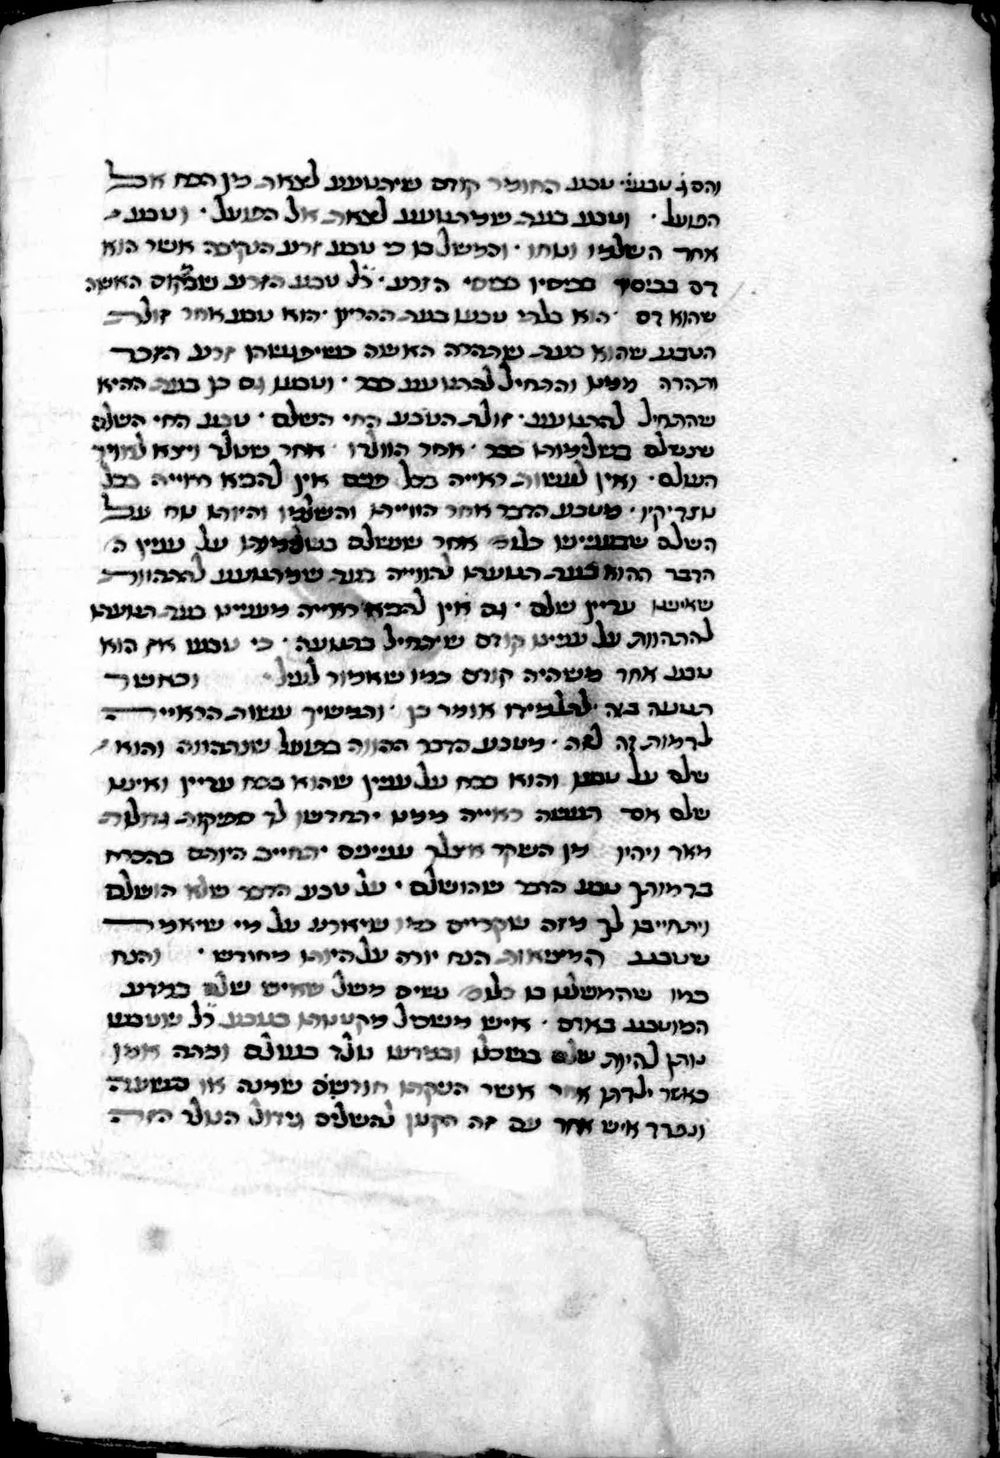 והס ג' טבעי׳ טבע החומר קודם שיתנועע לצאת מן הכח אל
הפועל · וטבע בעת שמתנועע לצאת אל הפועל · וטבע
אחר השלמו ונוחו · והמשל בו כי טבע זרע הנקיבה אשר הוא
דם בכיסין בכיסי הזרע · ר״ל טבע הזרע שבמקום האשה
שהוא דם · הוא בלתי טבעו בעת ההריון · הוא טבע אחר זולת
הטבע שהוא בעת שתהרה האשה כשיפגשהו זרע הזכר
ותהרה ממנו והתחיל להתנועע כבר · וטבעו גם כן בעת ההיא
שהתחיל להתנועע · זולת הטבע החי השלם · טבע החי השלם
שנשלם בשלמותו כבר · אחר הוולדו · אחר שנולד ויצא לאויר
העולם · ואין לעשות ראייה בכל פנים אין להביא ראייה בכל
מטבע הדבר אחר הווייתו והשלמו והיותו נח על
השלם שבענייניו כלומ׳ אחר שנשלם בשלמותו על עניין ה
הדבר ההוא בעת תנועתו להווייה בעת שמתנועע להתהוות
שאינו עדיין שלם · גם אין להביא ראייה מעניינו בעת תנועתו
להתהוות על עניינו קודם שיתחיל בתנועה · כי טבעו אז הוא
טבע אחר משהיה קודם כמו שאמור למעל׳ וכאשר
אומר כן · והמשיך עשות הראייה
לדמות זה לזה · מטבע הדבר ההווה בפועל שנתהווה והוא
שלם על טבעו והוא בכח על עניין שהוא בכח עדיין ואינו
שלם אם תעשה ראייה ממנו יתחדשו לך ספיקות גדולות
מאד ויהיו מן השקר אצלך עניינים יתחייב היותם בהכרח
בדמותך טבע הדבר שהושלם · על טבע הדבר שלא הושלם
ויתחייבו לך מזה שקריים כמו שיארע על מי שיאמר
שטבע המציאות הנח יורה על היותו מחודש · והנח
כמו שהמשלנו בו כלומ׳ נשים משל שאיש שלם במדע
המוטבע באדם · איש משכיל מקטנותו בטבע ר״ל שטבעו
נותן להיות שלם בשכלו ובמדעו נולד בעולם ומתה אמו
כאשר ילדתו אחר אשר הניקתו חודשים שמנה או תשעה
ונפרד איש אחר עם זה הקטן להשלים גידול הנולד הזה